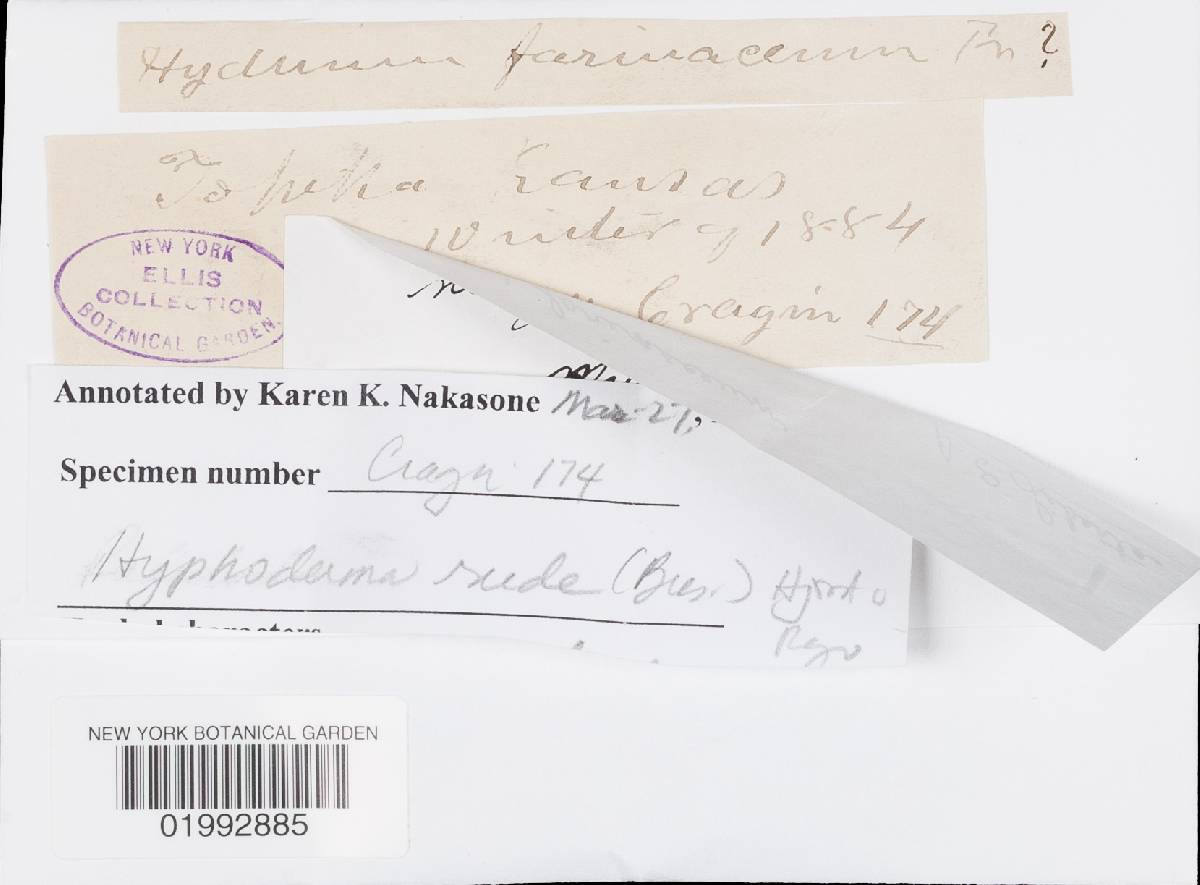 Hydnum farinaceum Fr ?
Topeka Kansas
winter of 1884
Cragin 174
NEW YORK
ELLIS
COLLECTION
BOTANICAL GARDEN.
Annotated by Karen K. Nakasone Mar 27,
Specimen number Cragin 174
Hyphoderma rude (Bres.) Hjort &
Ryv
NEW YORK BOTANICAL GARDEN
01992885